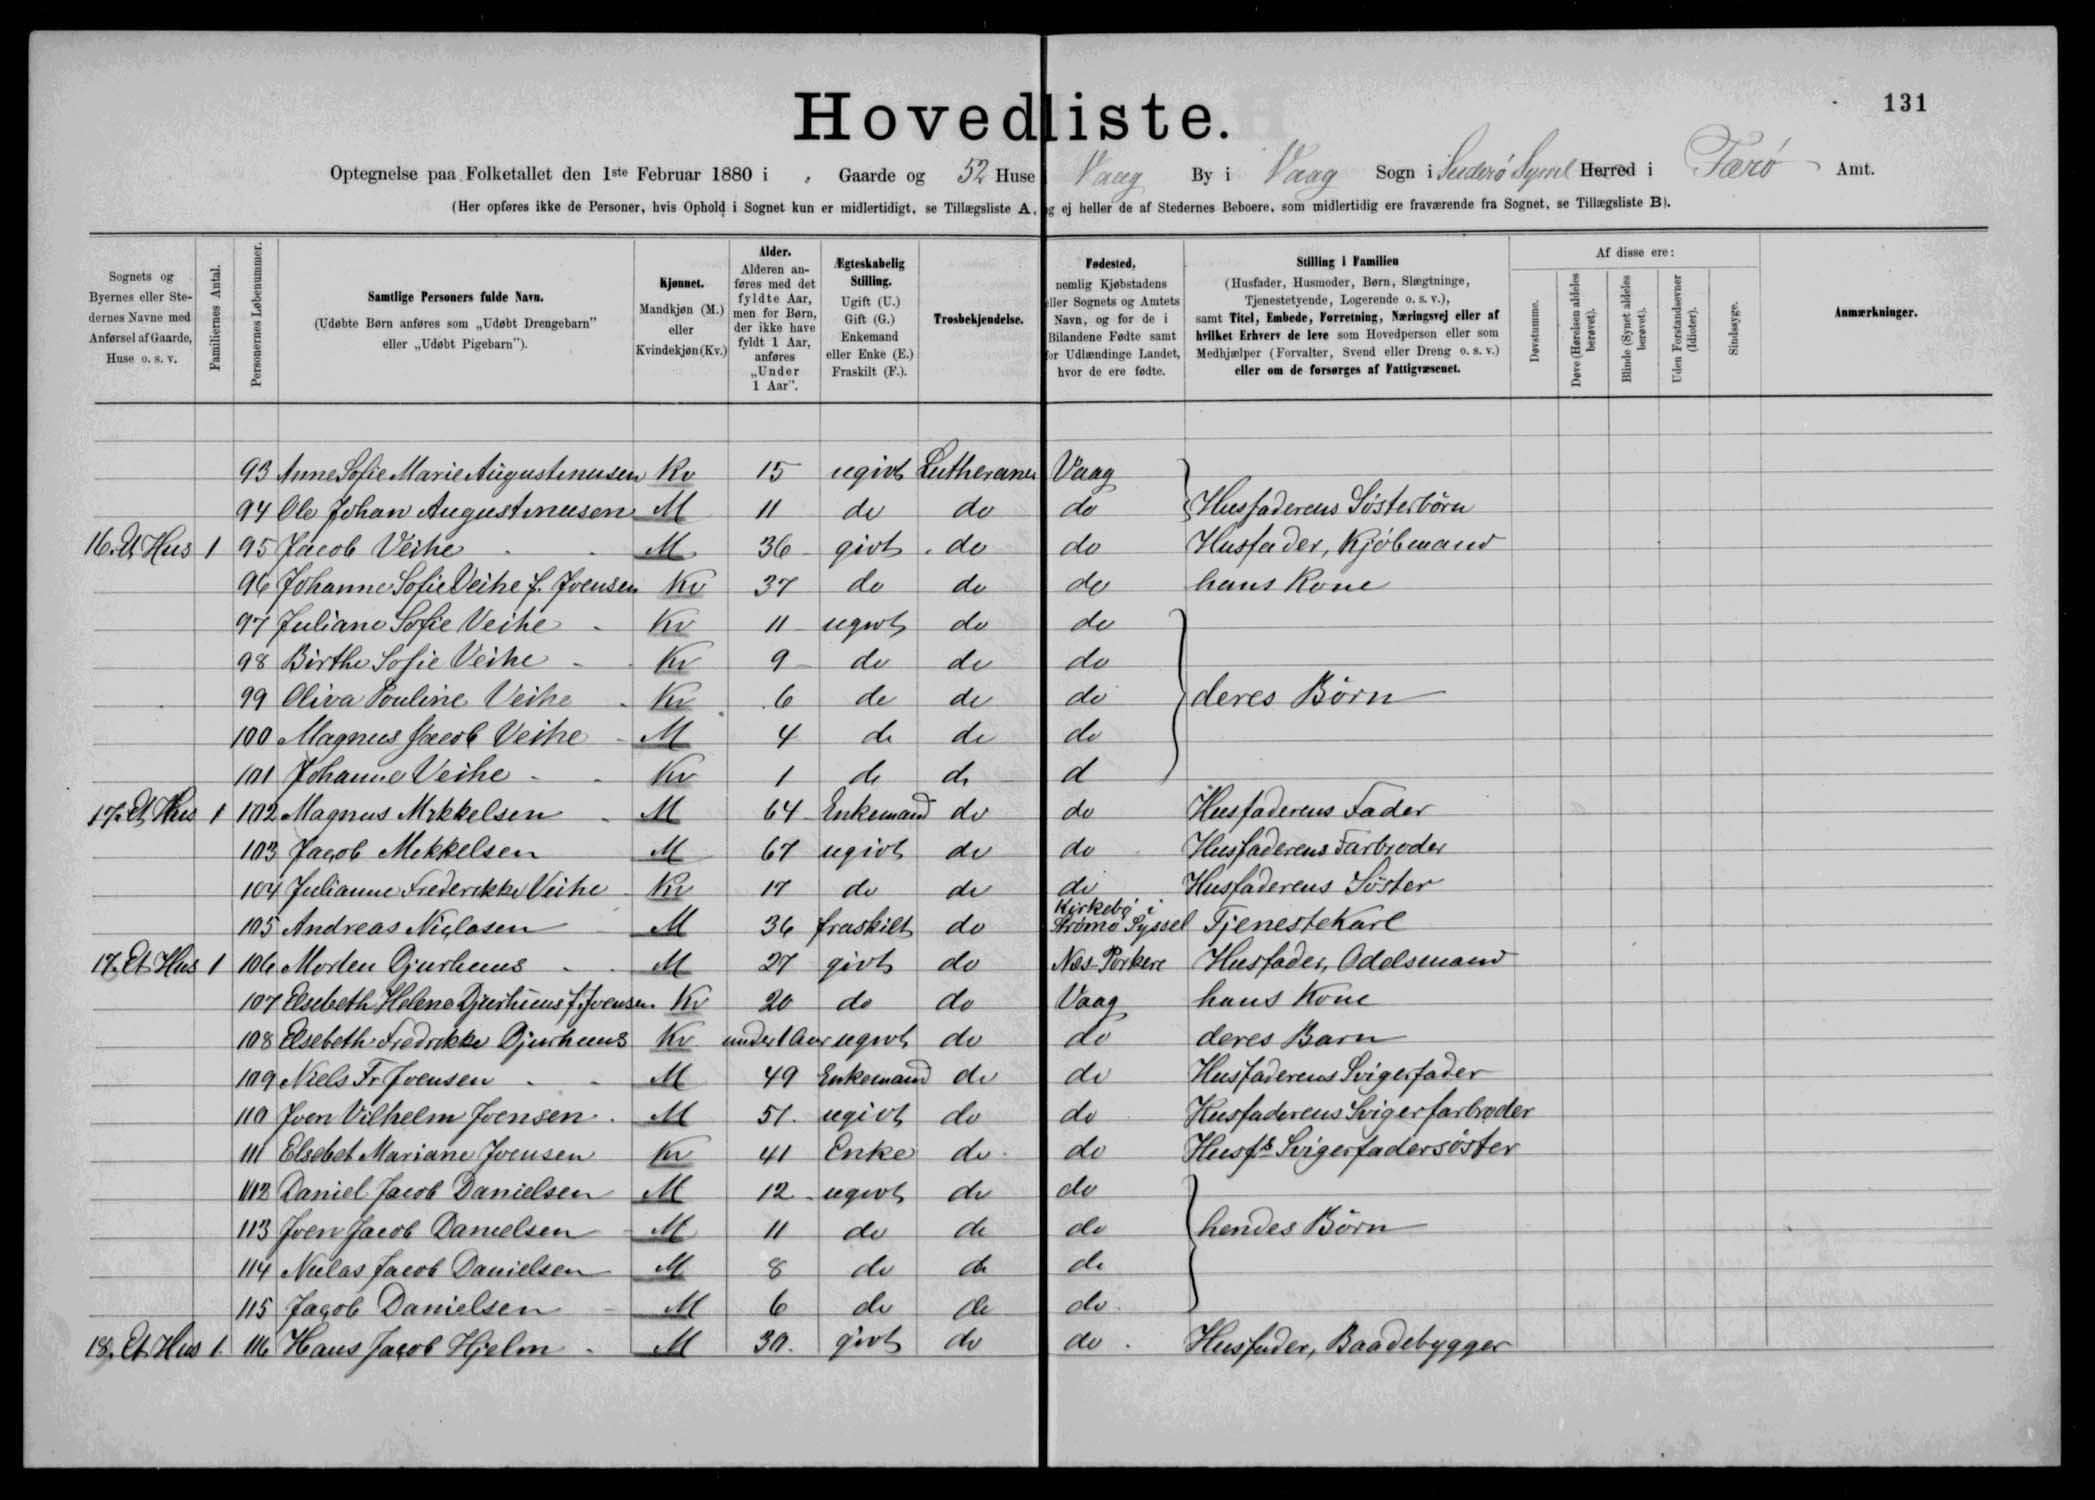 131
Hovedliste.
Optegnelse paa Folketallet den 1ste Februar 1880 i , Gaarde og 52 Huse Vaag By i Vaag Sogn i Suderø Syssel Herred i Færø Amt.
(Her opføres ikke de Personer, hvis Ophold i Sognet kun er midlertidigt, se Tillægsliste A, og ej heller de af Stedernes Beboere, som midlertidig ere fraværende fra Sognet, se Tillægsliste B).
Sognets og Byernes eller Stedernes Navne med Anførsel af Gaarde, Huse o. s. v.
Familiernes Antal.
Personernes Løbenummer.
Samtlige Personers fulde Navn.
(Udøbte Børn anføres som „Udøbt Drengebarn" eller „Udøbt Pigebarn").
Kjønnet.
Mandkjøn (M.) eller Kvindekjøn (Kv.)
Alder.
Alderen anføres med det fyldte Aar, men for Børn, der ikke have fyldt 1 Aar, anføres „Under 1 Aar".
Ægteskabelig Stilling.
Ugift (U.) Gift (G.) Enkemand eller Enke (E.) Fraskilt (F.).
Trosbekjendelse.
Fødested,
nemlig Kjøbstadens eller Sognets og Amtets Navn, og for de i Bilandene Fødte samt for Udlændinge Landet, hvor de ere fødte.
Stilling i Familien
(Husfader, Husmoder, Børn, Slægtninge, Tjenestetyende, Logerende o. s. v.),
samt Titel, Embede, Forretning, Næringsvej eller af hvilket Erhverv de leve som Hovedperson eller som Medhjælper (Forvalter, Svend eller Dreng o. s. v.) eller om de forsørges af Fattigvæsenet.
Af disse ere:
Døvstumme.
Døve (Hørelsen aldeles berøvet).
Blinde (Synet aldeles berøvet).
Uden Forstandsevner (Idioter).
Sindssyge.
Anmærkninger.
93 Anne Sofie Marie Augustinusen Kv 15 ugivt Lutheraner Vaag
94 Ole Johan Augustinusen M 11 do do do Husfaderens Søsterbørn
16. Et Hus 1 95 Jacob Veihe M 36 givt do do Husfader, Kjøbmand
96 Johanne Sofie Veihe f. Joensen Kv 37 do do do hans Kone
97 Juliane Sofie Veihe Kv 11 ugivt do do
98 Birthe Sofie Veihe Kv 9 do do do
99 Oliva Pouline Veihe Kv 6 do do do deres Børn
100 Magnus Jacob Veihe M 4 do do do
101 Johanne Veihe Kv 1 do do d
17. Et Hus 1 102 Magnus Mikkelsen M 64 Enkemand do do Husfaderens Fader
103 Jacob Mikkelsen M 67 ugivt do do Husfaderens Farbroder
104 Julianne Frederikke Veihe Kv 17 do do do Husfaderens Søster
105 Andreas Niclasen M 36 fraskilt do Kirkebø i Strømø Syssel Tjenestekarl
17. Et Hus 1 106 Morten Djurhuus M 27 givt do Næs Porkere Husfader, Odelsmand
107 Elsebeth Helene Djurhuus f. Joensen Kv 20 do do Vaag hans Kone
108 Elsebeth Fredrikke Djurhuus Kv under 1 Aar ugivt do do deres Barn
109 Niels Fr Joensen M 49 Enkemand do do Husfaderens Svigerfader
110 Joen Vilhelm Joensen M 51. ugivt do do Husfaderens Svigerfarbroder
111 Elsebet Mariane Joensen Kv 41 Enke do do Husfs Svigerfadersøster
112 Daniel Jacob Danielsen M 12 ugivt do do
113 Joen Jacob Danielsen M 11 do do do hendes Børn
114 Niclas Jacob Danielsen M 8 do do do
115 Jacob Danielsen M 6 do do do
18. Et Hus 1. 116 Hans Jacob Hjelm M 30. givt do do Husfader, Baadebygger